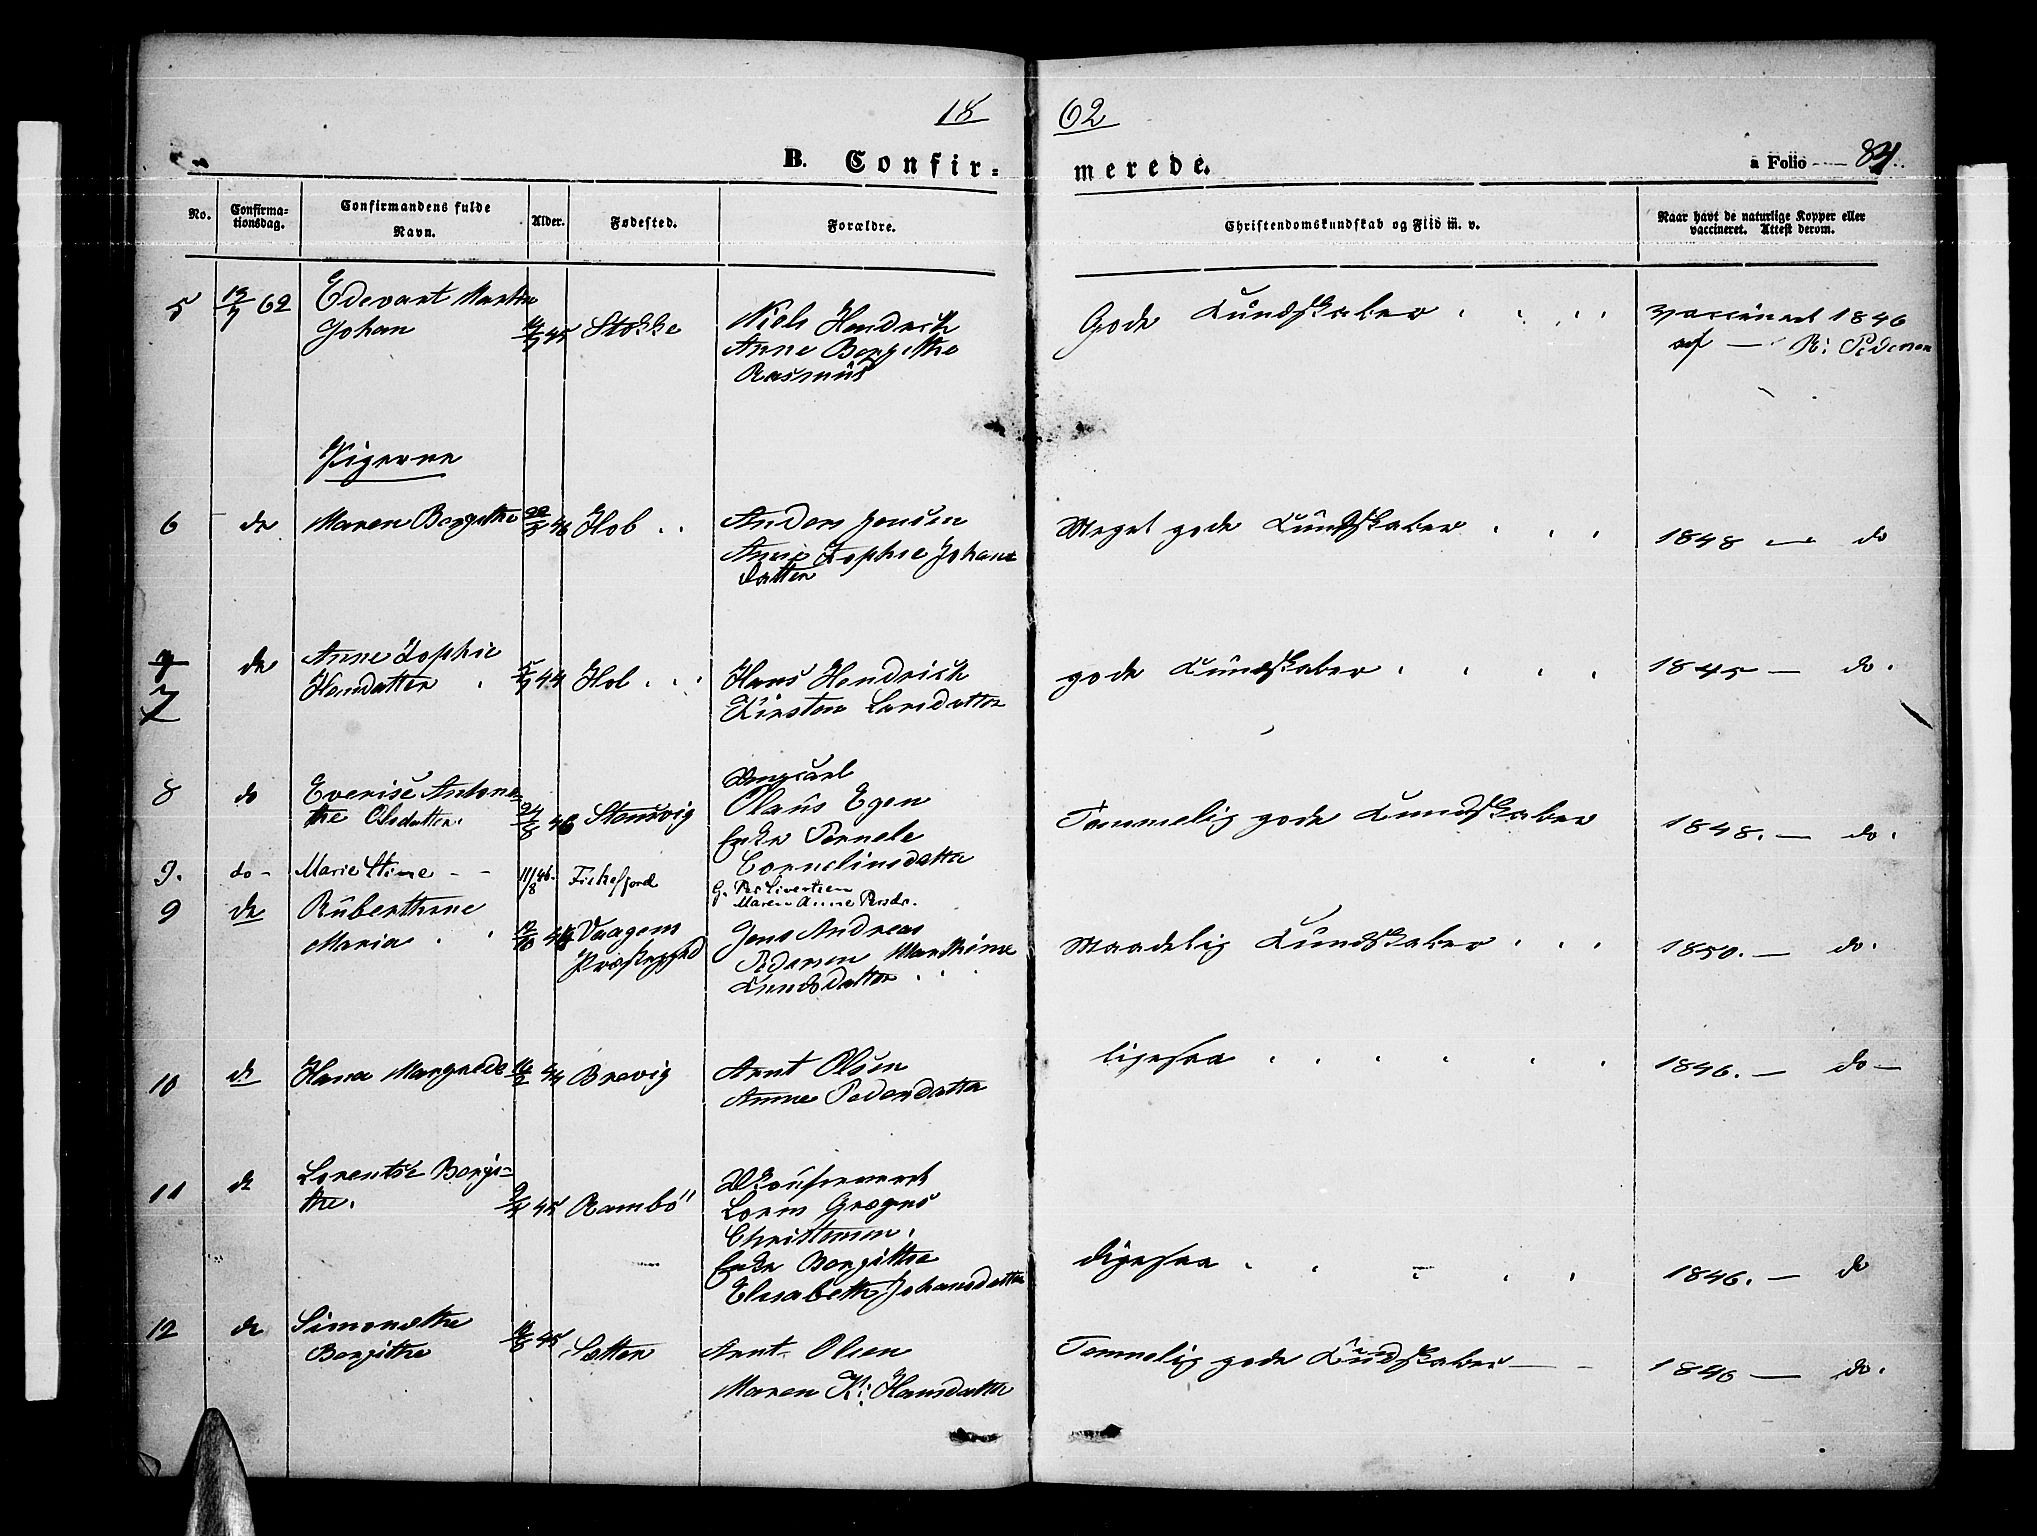 18 62
B. Confir- merede.
a Folio 84.
No.
Confirma-
tionsdag.
Confirmandens fulde
Navn.
Alder.
Fødested.
Forældre.
Christendomskundskab og Flid m. v.
Naar havt de naturlige Kopper eller
vaccineret. Attest derom.
5 13/7 62 Edevart Martin
Johan 45 Stokke
Niels Hendrich
Anne Bergitthe
Rasmus
Gode Kundskaber
Vaccineret 1846
af — R: Pedersen
Pigerne
6 do Maren Bergitthe 46 Hol
Anders Jensen
Anne Sophie Johans
datter
Meget gode Kundskaber
1848 — do
7
7 do Anne Sophie
Hansdatter 44 Hol
Hans Hendrich
Kirsten Larsdatter
gode Kundskaber
1845 — do.
8 do Everise Antone-
the Olsdatter. 46 Steinsvig
Ungcarl
Olaus Egen
Enke Pernele
Cornelinsdatter
Temmelig gode Kundskaber
1848. — do.
9. do- Marie Stine - - 11/8 46. Fiskefjord
G. Per Sivertsen
Maren Anne Persdr.
9 do Ruberthine
Maria 12/10 Vaagens
Præstegjeld
Jens Andreas
Pedersen Marthine
Knudsdatter
Maadelig Kundskaber
1850. — do.
10 do Hana Margrede 16/2 44 Brevig
Arnt Olsen
Anne Pedersdatter
ligesaa
1846. — do —
11 do Lorentse Bergi-
the. 45 Rambö
Lorns Grægus
Christensen.
Enke Bergitthe
Elisabeth Johansdatter
ligesaa
1846. — do
12 do Simonethe
Bergitthe 45 Sætter
Arnt Olsen
Maren K: Hansdatter
Temmelig gode Kundskaber — -
1846 — do.